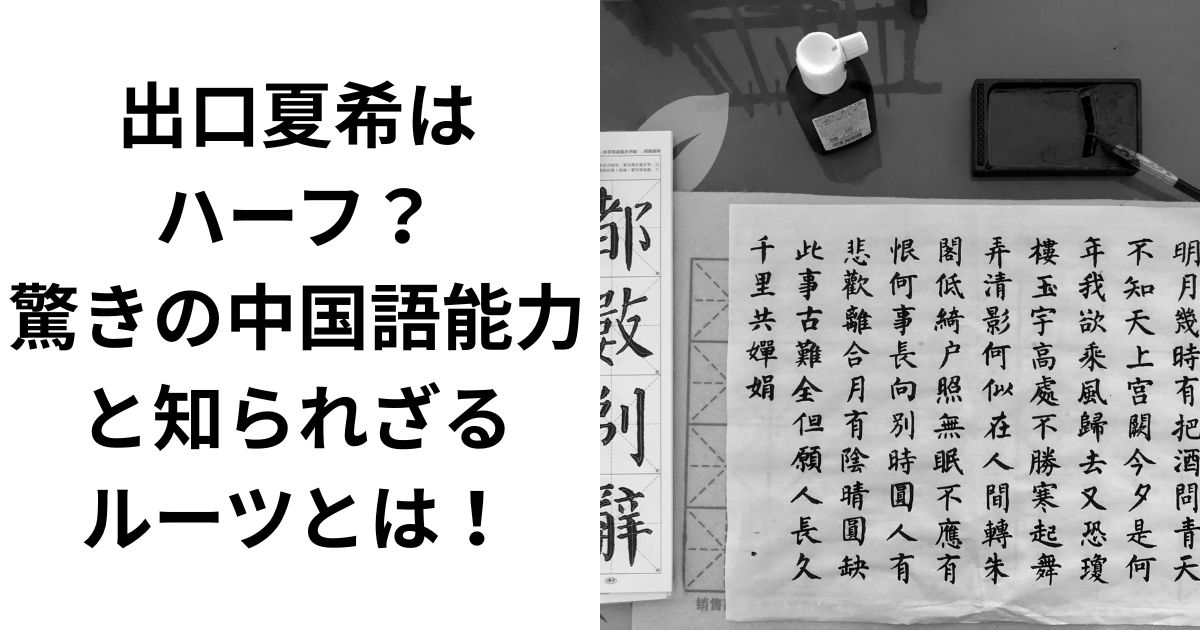 出口夏希は
ハーフ？
驚きの中国語能力
と知られざる
ルーツとは！
明月幾時有把酒問青天
不知天上宮闕今夕是何
年我欲乘風歸去又恐瓊
樓玉宇高處不勝寒起舞
弄清影何似在人間轉朱
閣低綺户照無眠不應有
恨何事長向別時圓人有
悲歡離合月有陰晴圓缺
此事古難全但願人長久
千里共嬋娟
都
毀
別
辭
销售